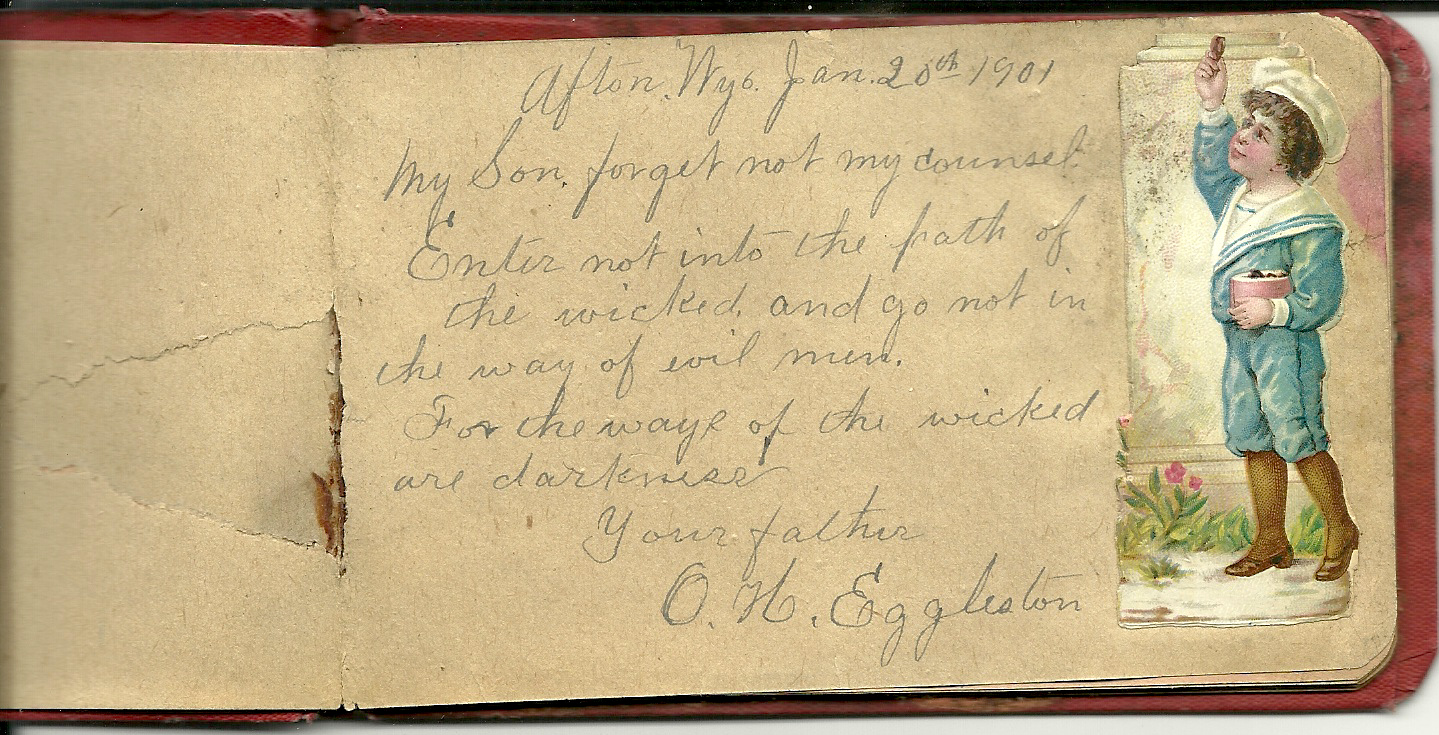 Afton, Wyo. Jan. 20th 1901
My Son, forget not my counsel.
Enter not into the path of
the wicked, and go not in
the way of evil men.
For the ways of the wicked
are darkness
Your father
O. H. Eggleston